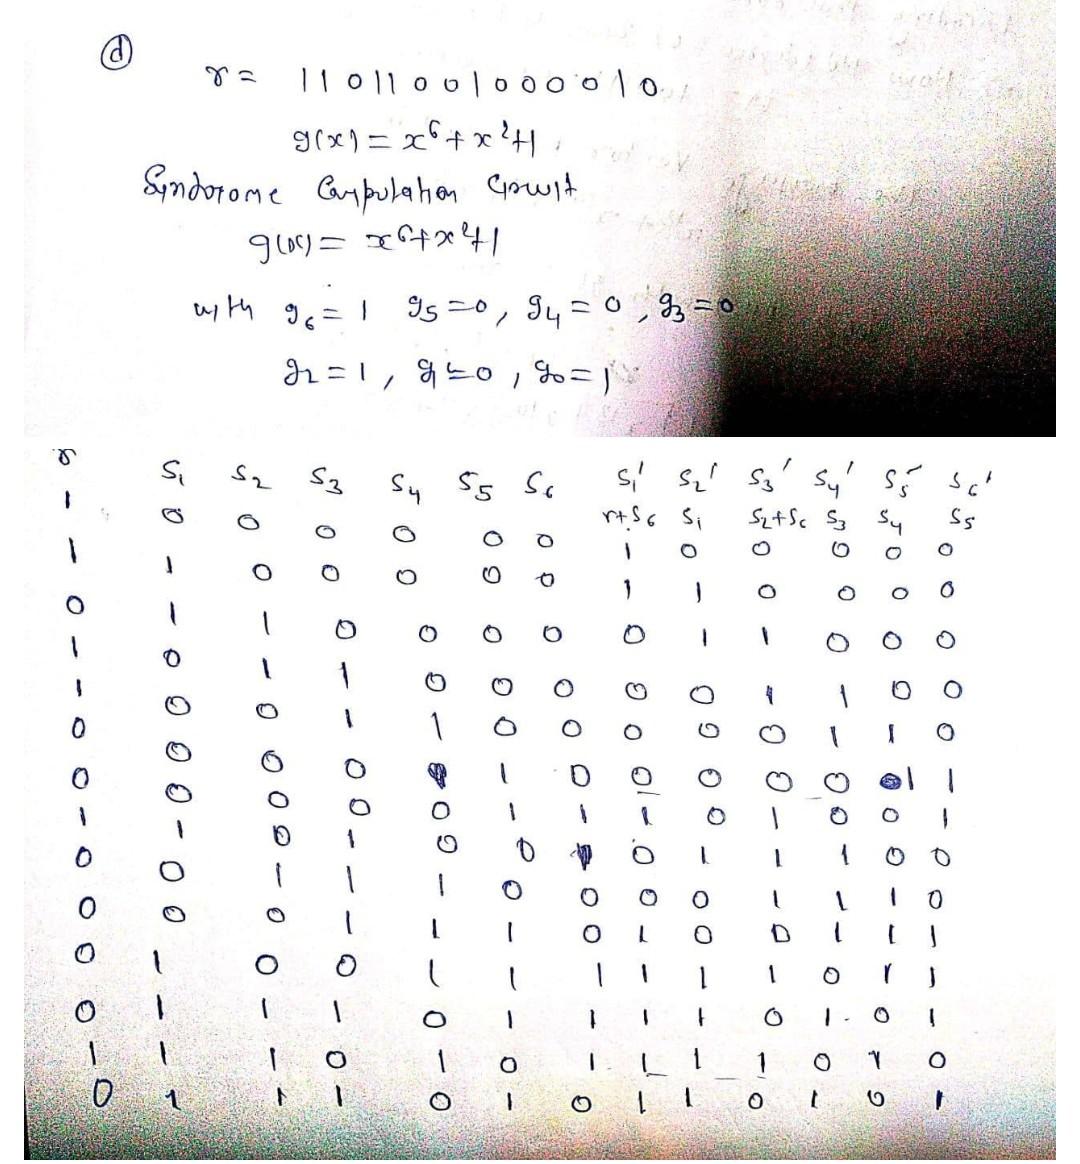 (d)
r = 11011001000010
g(x) = x⁶ + x² + 1
Syndorome Computation Circuit
g(x) = x⁶ + x² + 1
with g₆ = 1 g₅ = 0, g₄ = 0, g₃ = 0
g₂ = 1, g₁ = 0, g₀ = 1
r S₁ S₂ S₃ S₄ S₅ S₆ S₁' S₂' S₃' S₄' S₅' S₆'
r+S₆ S₁ S₂+S₆ S₃ S₄ S₅
1 0 0 0 0 0 0 1 0 0 0 0 0
1 1 0 0 0 0 0 1 1 0 0 0 0
0 1 1 0 0 0 0 0 1 1 0 0 0
1 0 1 1 0 0 0 0 0 1 1 0 0
1 0 0 1 1 0 0 0 0 0 1 1 0
0 0 0 0 1 1 0 0 0 0 0 1 1
0 0 0 0 0 1 1 1 0 1 0 0 1
1 1 0 1 0 0 1 0 1 1 1 0 0
0 0 1 1 1 0 0 0 0 1 1 1 0
0 0 0 1 1 1 0 1 0 0 1 1 1
0 1 0 0 1 1 1 1 1 1 0 1 1
0 1 1 1 0 1 1 1 1 0 1 0 1
1 1 1 0 1 0 1 1 1 1 0 1 0
0 1 1 1 0 1 0 1 1 0 1 0 1